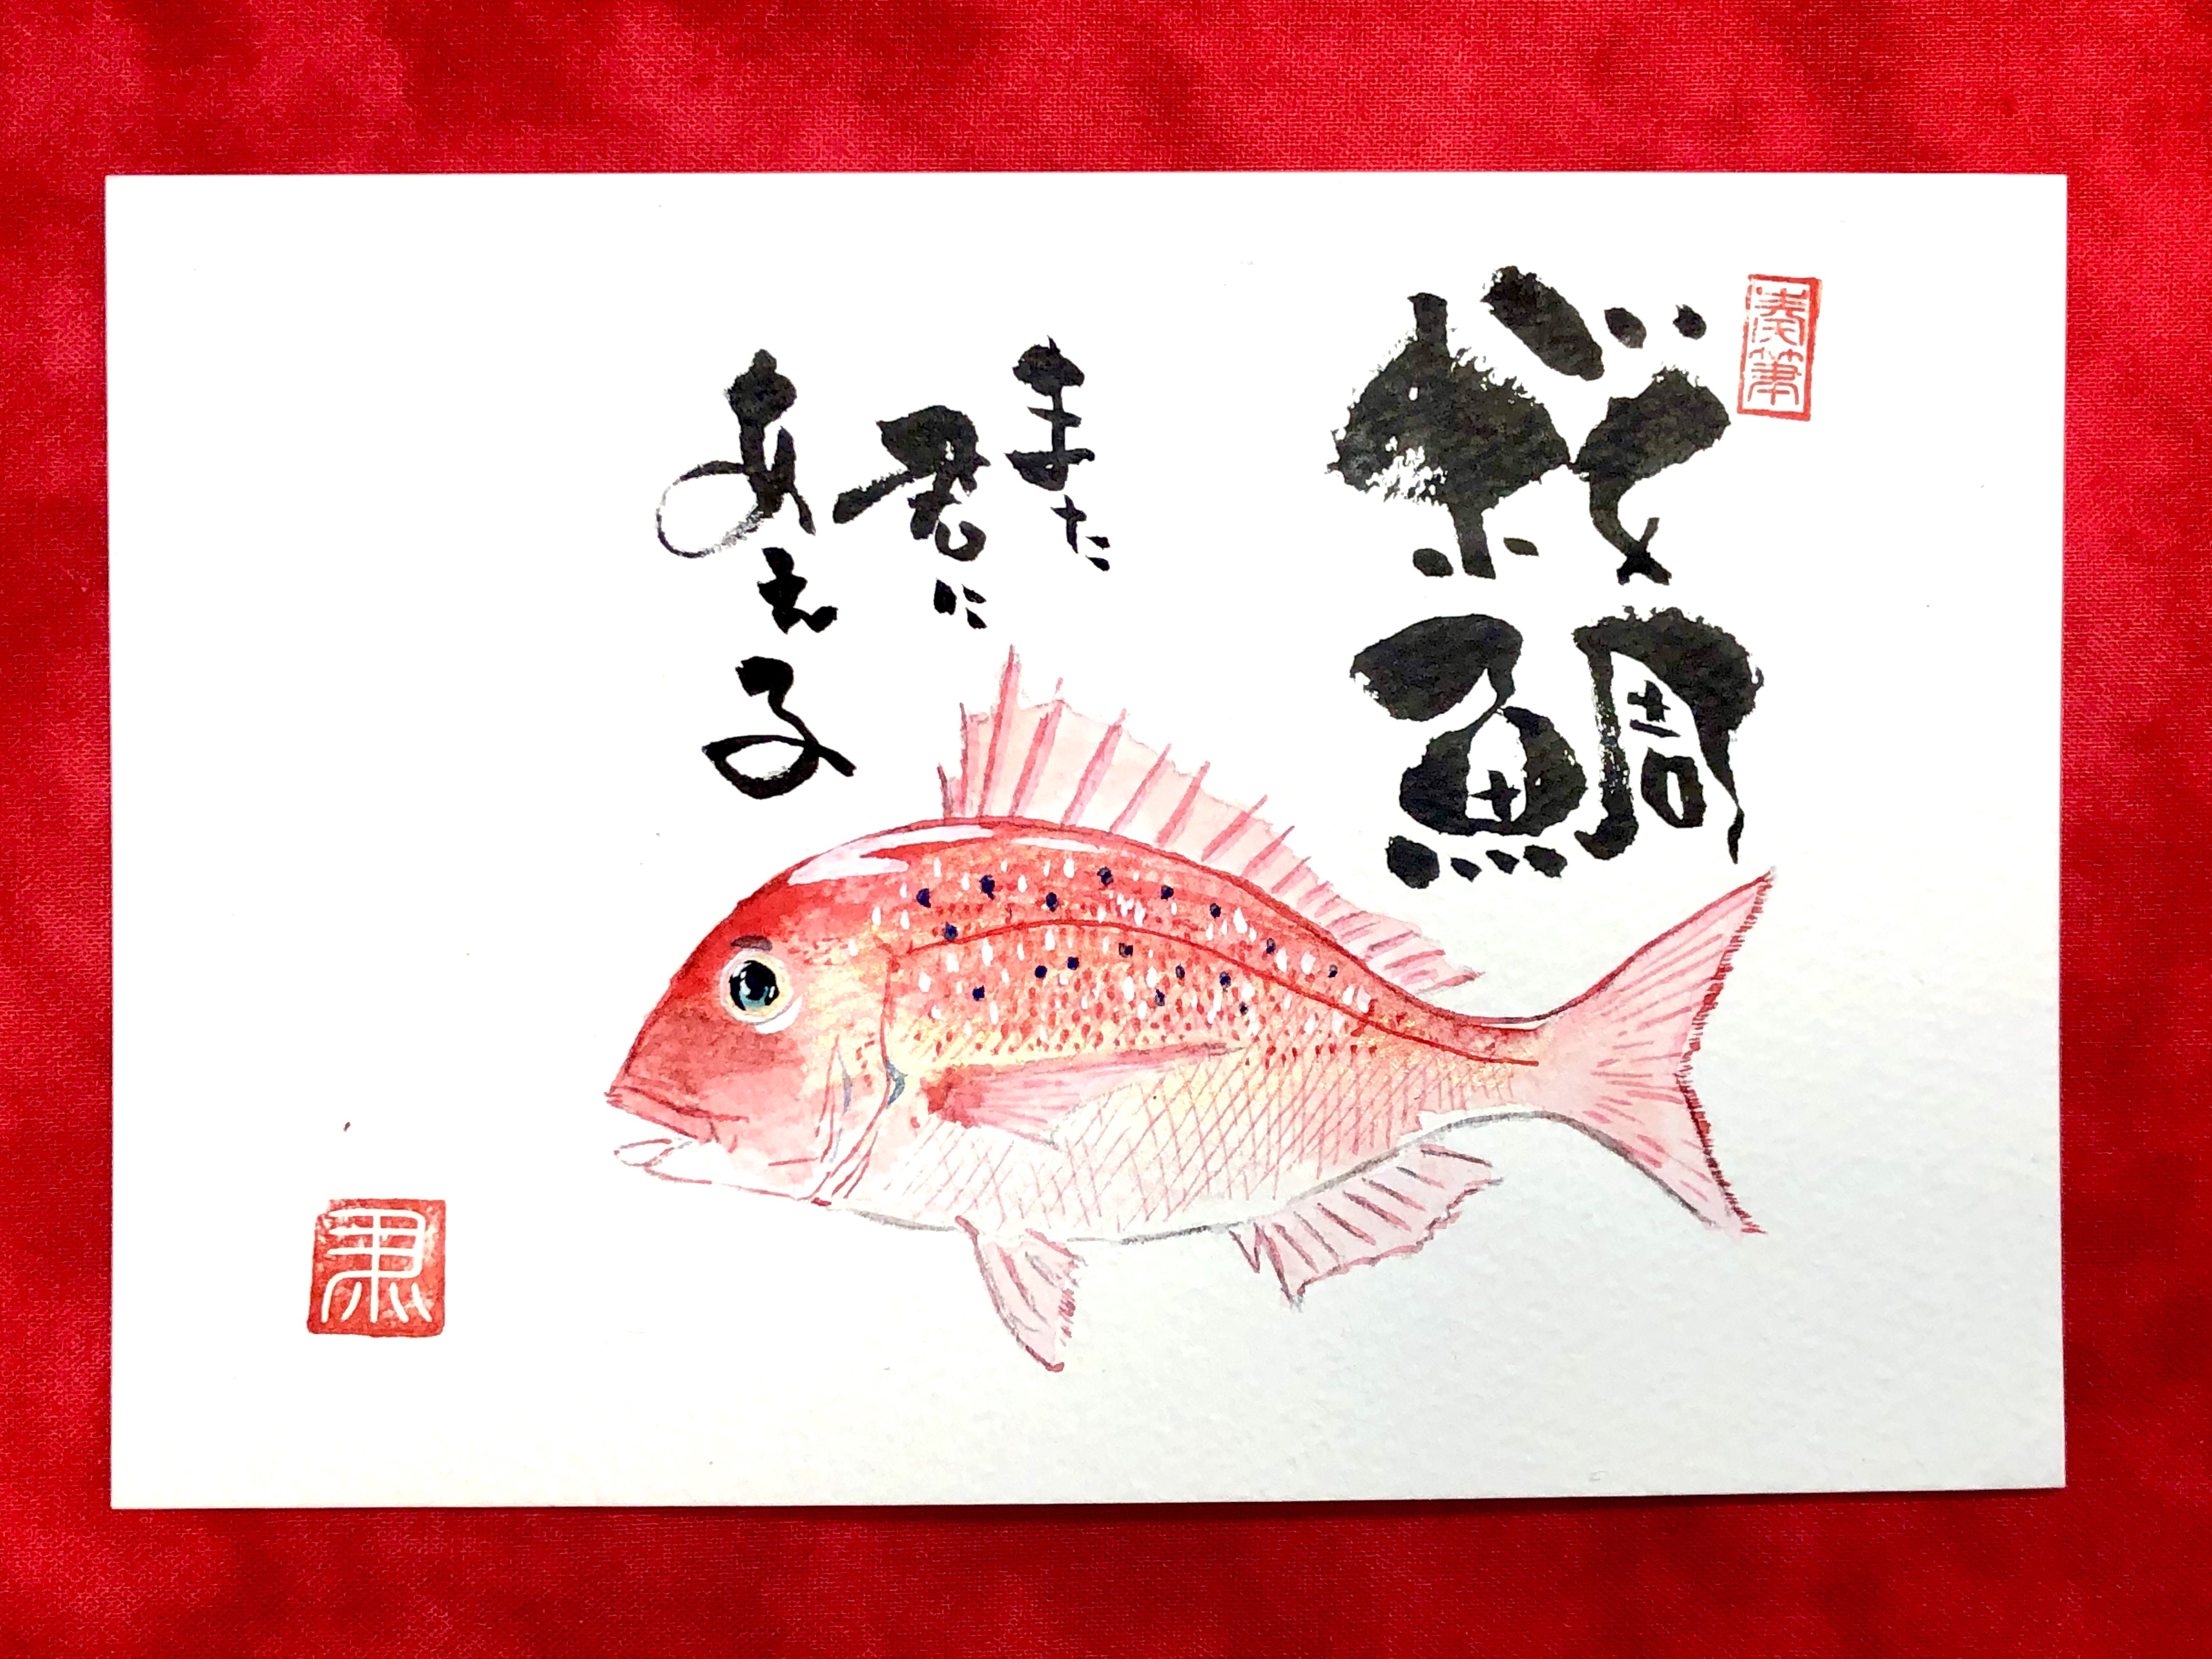 桜鯛
また
君に
あえる